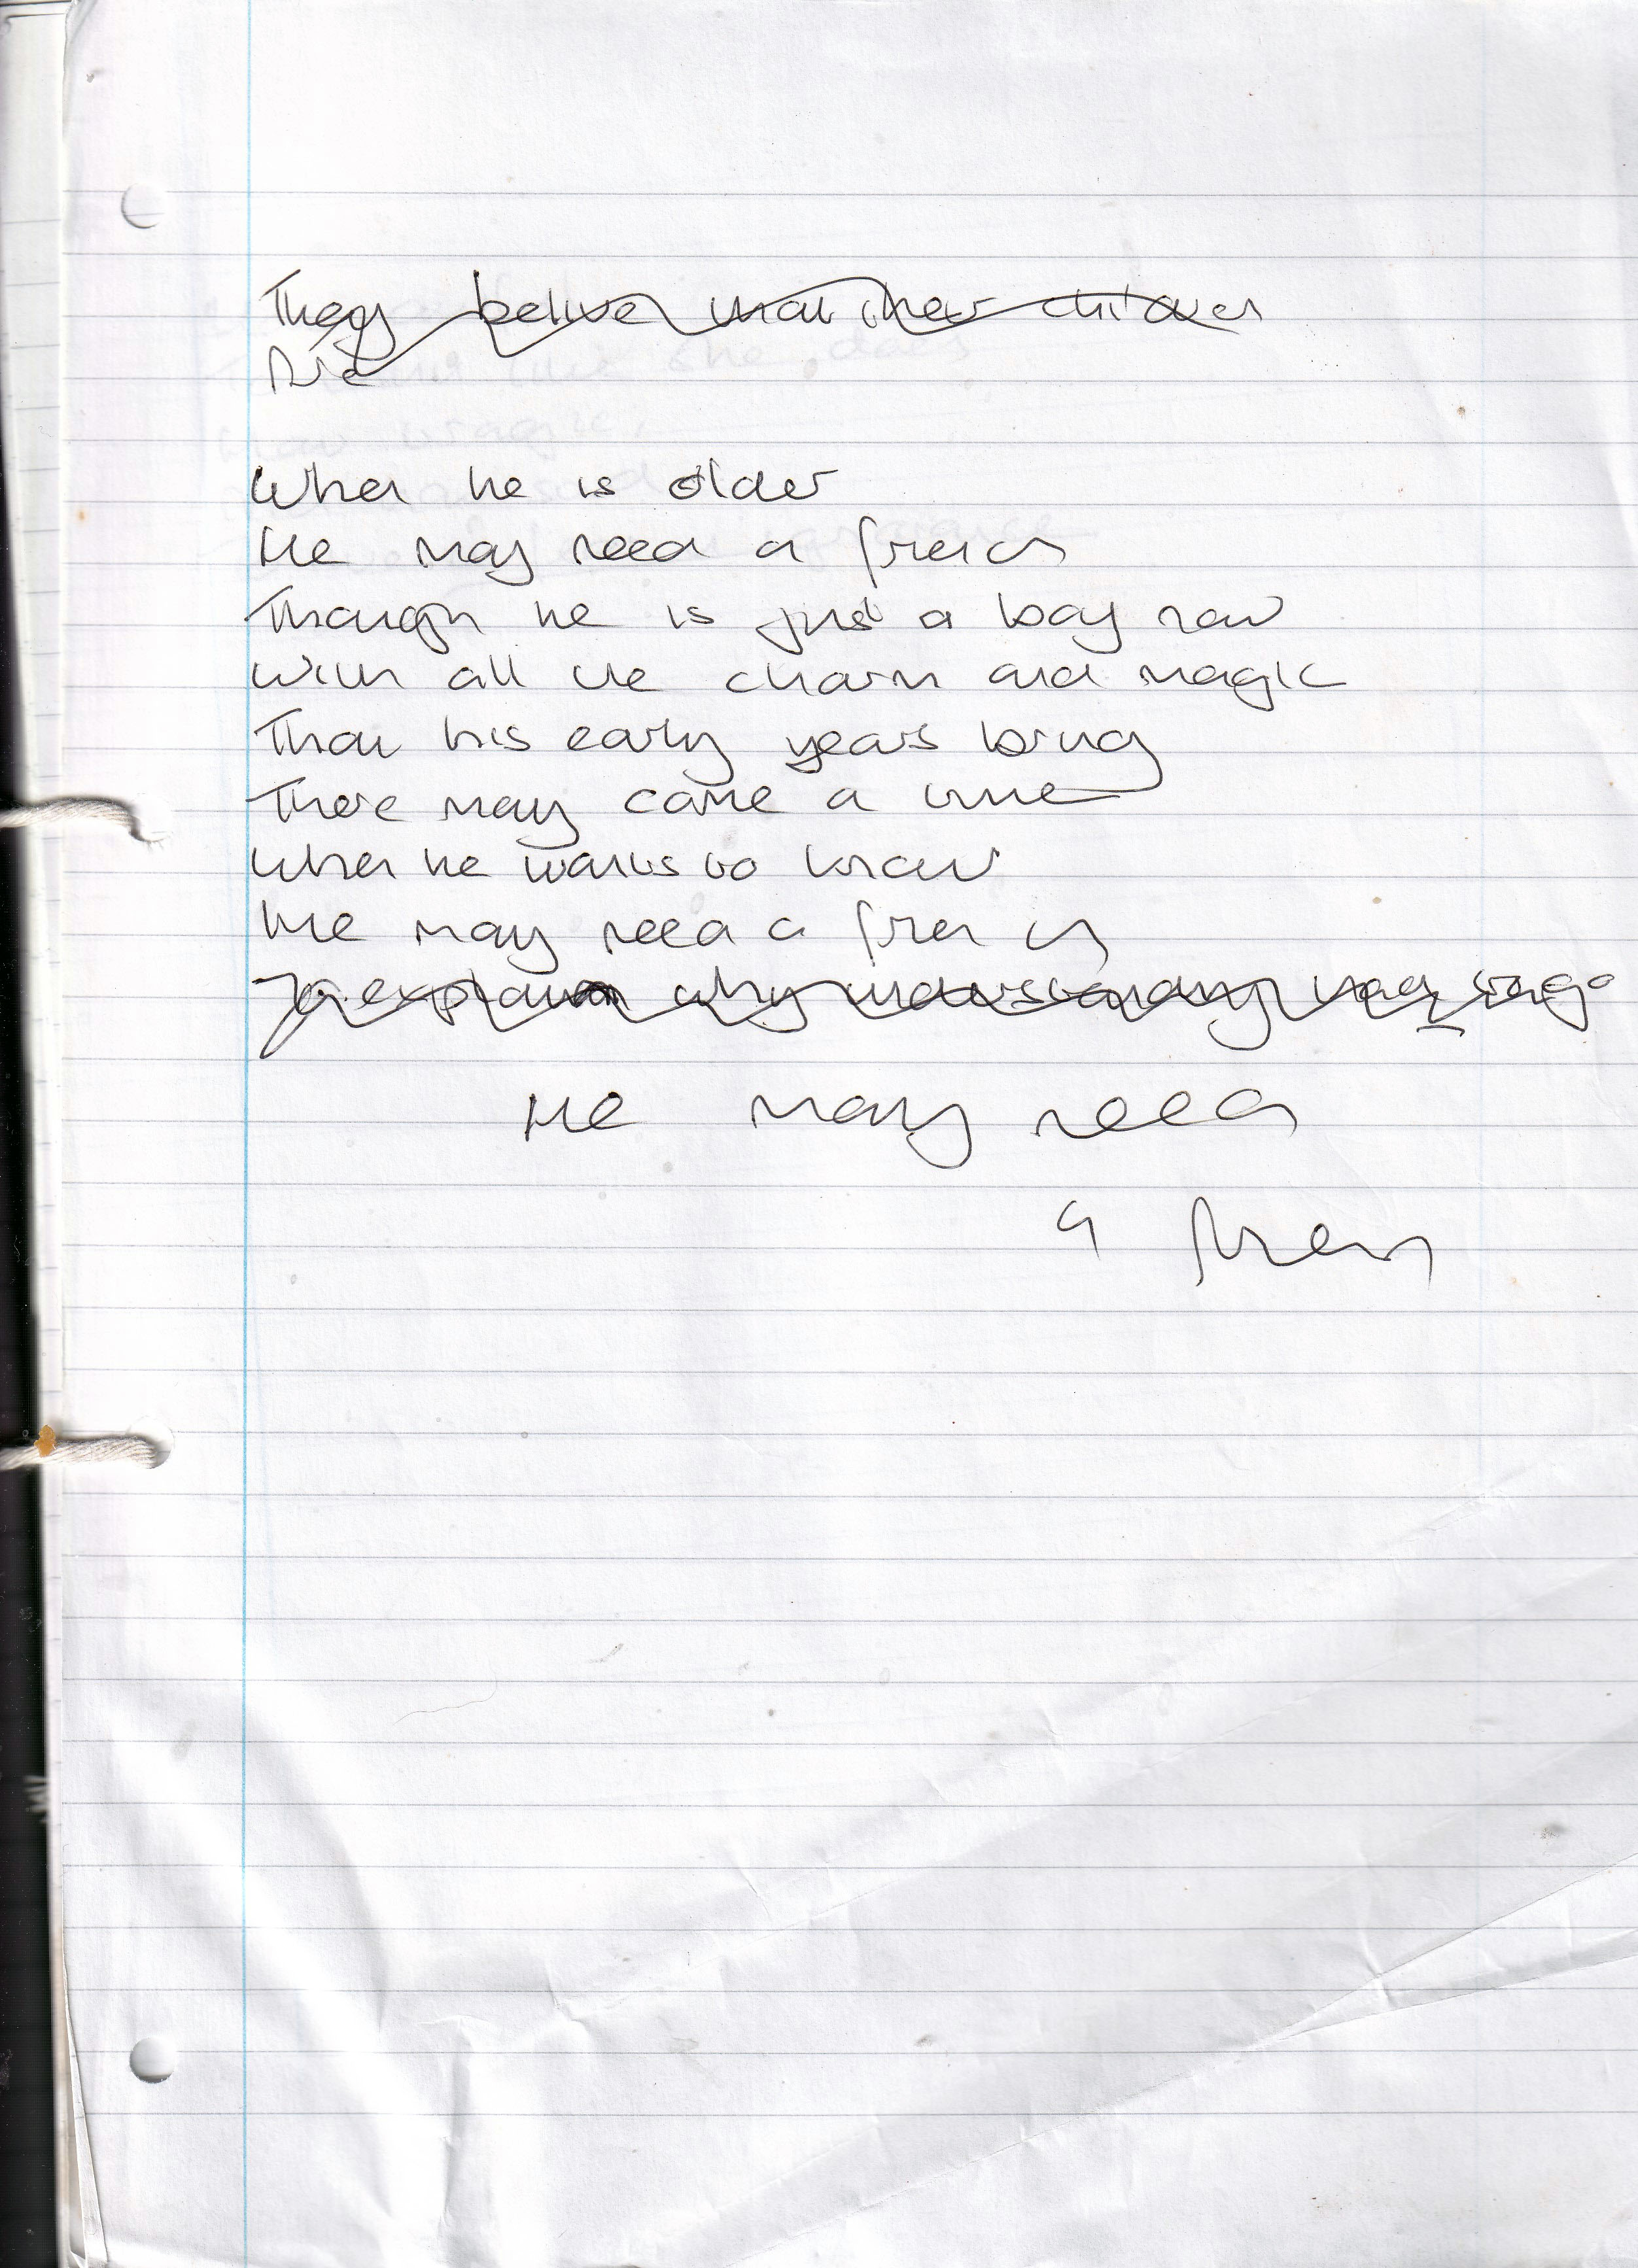 They belive that their children
Are
When he is older
He may need a friend
Though he is just a boy now
With all the charm and magic
That his early years bring
There may come a time
When he wants to know
He may need a friend
To explain why understanding
He may need
a friend